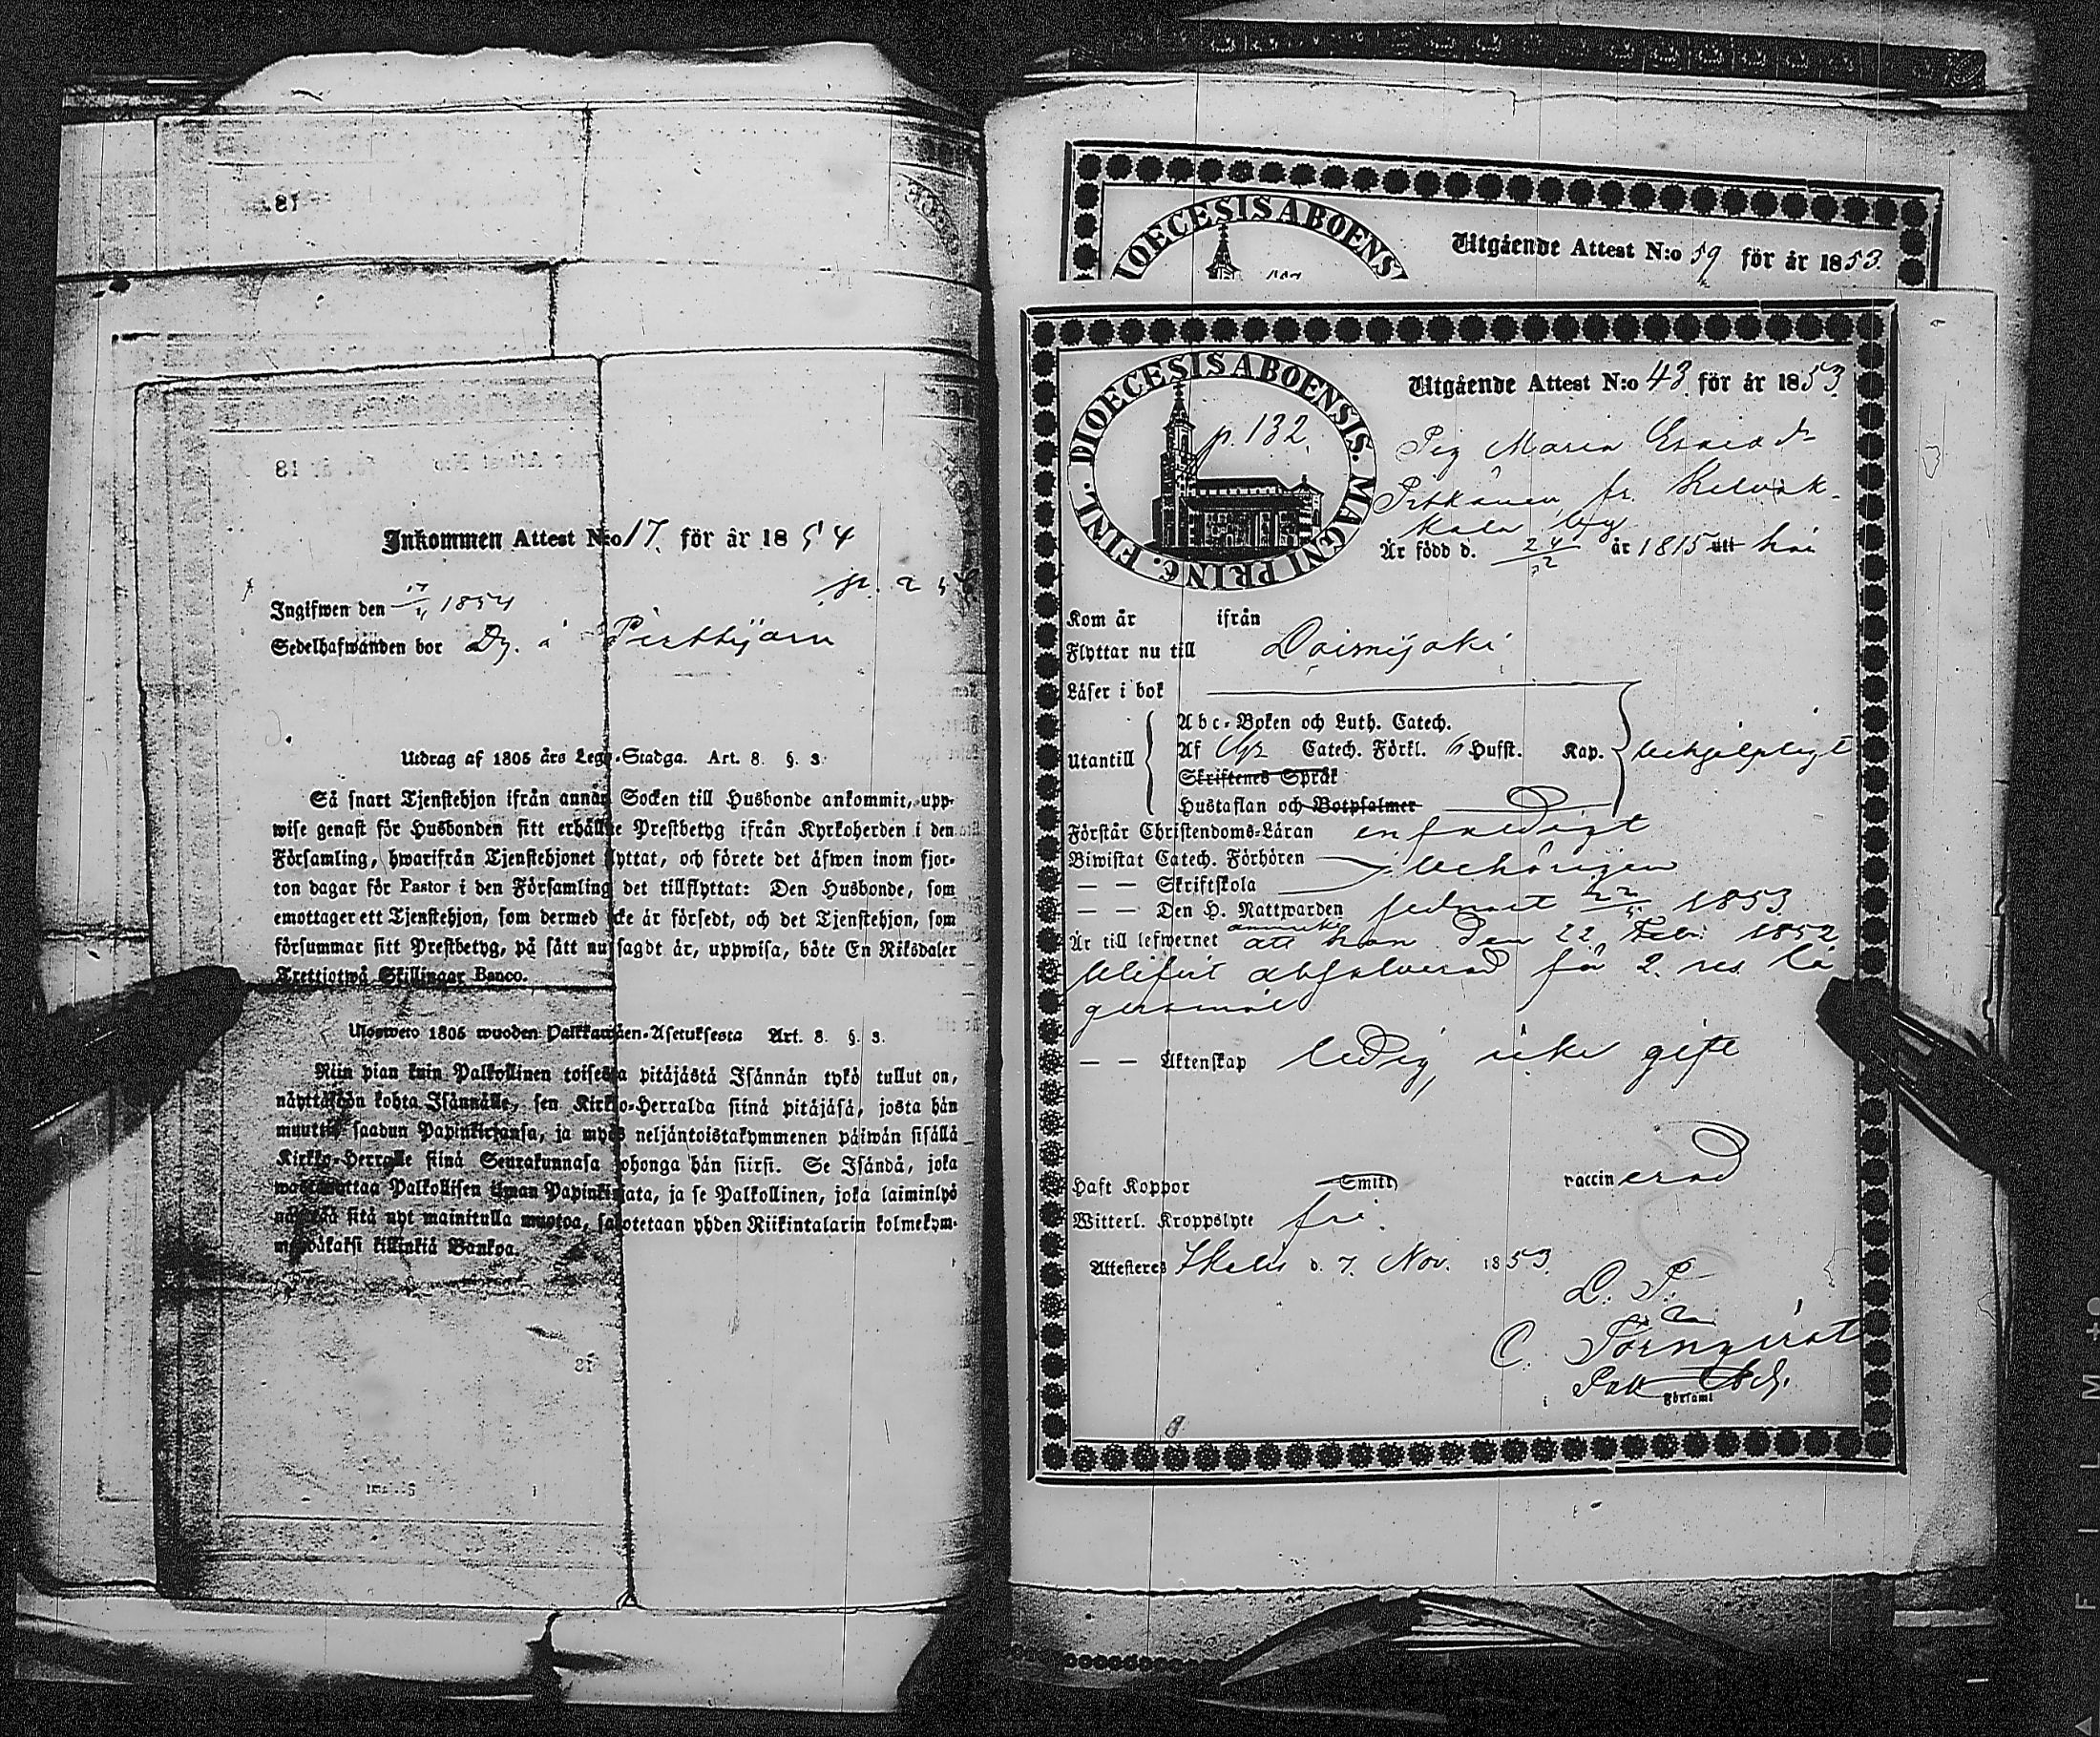 Inkommen Attest N:o 17. för år 1854
p. 2
Ingifwen den 17/4 1854
Sedelhafwanden bor Dg. å Perttijärn
Utdrag af 1805 års Lego-Stadga. Art. 8. §. 3.
Så snart Tjenstehjon ifrån annan Socken till Husbonde ankommit, upp-
wise genast för Husbonden sitt erhållne Prestbetyg ifrån Kyrkoherden i den
Församling, hwarifrån Tjenstehjonet flyttat, och förete det äfwen inom fjor-
ton dagar för Pastor i den Församling det tillflyttat: Den Husbonde, som
emottager ett Tjenstehjon, som dermed icke är försedt, och det Tjenstehjon, som
försummar sitt Prestbetyg, på sätt nu sagdt är, uppwisa, böte En Riksdaler
Trettiotwå Skillingar Banco.
Ulosweto 1805 wuoden Palkkausten-Asetuksesta Art. 8. §. 3.
Niin pian kuin Palkollinen toisesta pitäjästä Isännän tykö tullut on,
näyttäköön kohta Isännälle, sen Kirkko-Herralda siinä pitäjäsä, josta hän
muutti, saadun Papinkirjansa, ja myös neljäntoistakymmenen päiwän sisällä
Kirkko-Herralle siinä Seurakunnasa johonga hän siirsi. Se Isändä, joka
wastaanottaa Palkollisen ilman Papinkirjata, ja se Palkollinen, joka laiminlyö
näyttää sitä nyt mainitulla muotoa, sakotetaan yhden Riikintalarin kolmekym-
mendäkaksi killinkiä Bankoa.
DIOECESIS ABOENSI
Utgående Attest N:o 59 för år 1853.
DIOECESIS ABOENSIS. MAGNI PRINC. FINL.
p. 132.
Utgående Attest N:o 43. för år 1853
Pig Maria
Pitkänen fr.
kala by
Är född d. 24/ år 1815 att
Kom år ifrån
Flyttar nu till Loimijoki
Läser i bok
Utantill
Abc-Boken och Luth. Catech.
Af Catech. Förkl. 6 Hufst. Kap. behjelpligt
Skriftenes Språk
Hustaflan och Botpsalmer
Förstår Christendoms-Läran enfaldigt
Biwistat Catech. Förhören behörigen
— — Skriftskola
— — Den H. Nattwarden sednast 22/5 1853
Är till lefwernet att hon den 22 Febr. 1852
blifvit absolverad för 2. res. lä
gersmål
— — Äktenskap ledig, icke gift
Haft Koppor Smitt vaccinerad
Witterl. Kroppslyte fri.
Attesteras Ikalis d. 7. Nov. 1853.
C. Törnqvist
i Församl
FILM